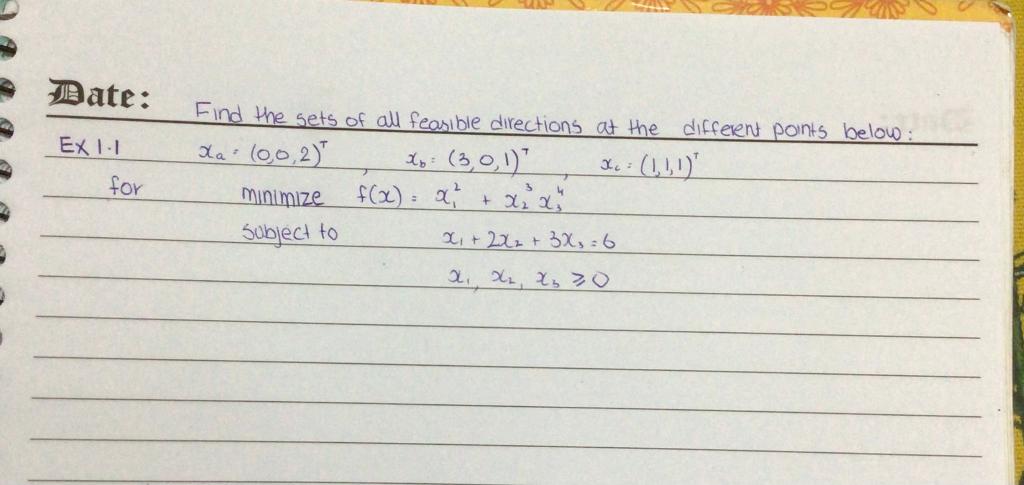 Date: Find the sets of all feasible directions at the different points below:
Ex 1.1 xₐ = (0,0,2)ᵀ, x_b = (3,0,1)ᵀ, x_c = (1,1,1)ᵀ
for minimize f(x) = x₁² + x₂³ x₃⁴
subject to x₁ + 2x₂ + 3x₃ = 6
x₁, x₂, x₃ ⩾ 0